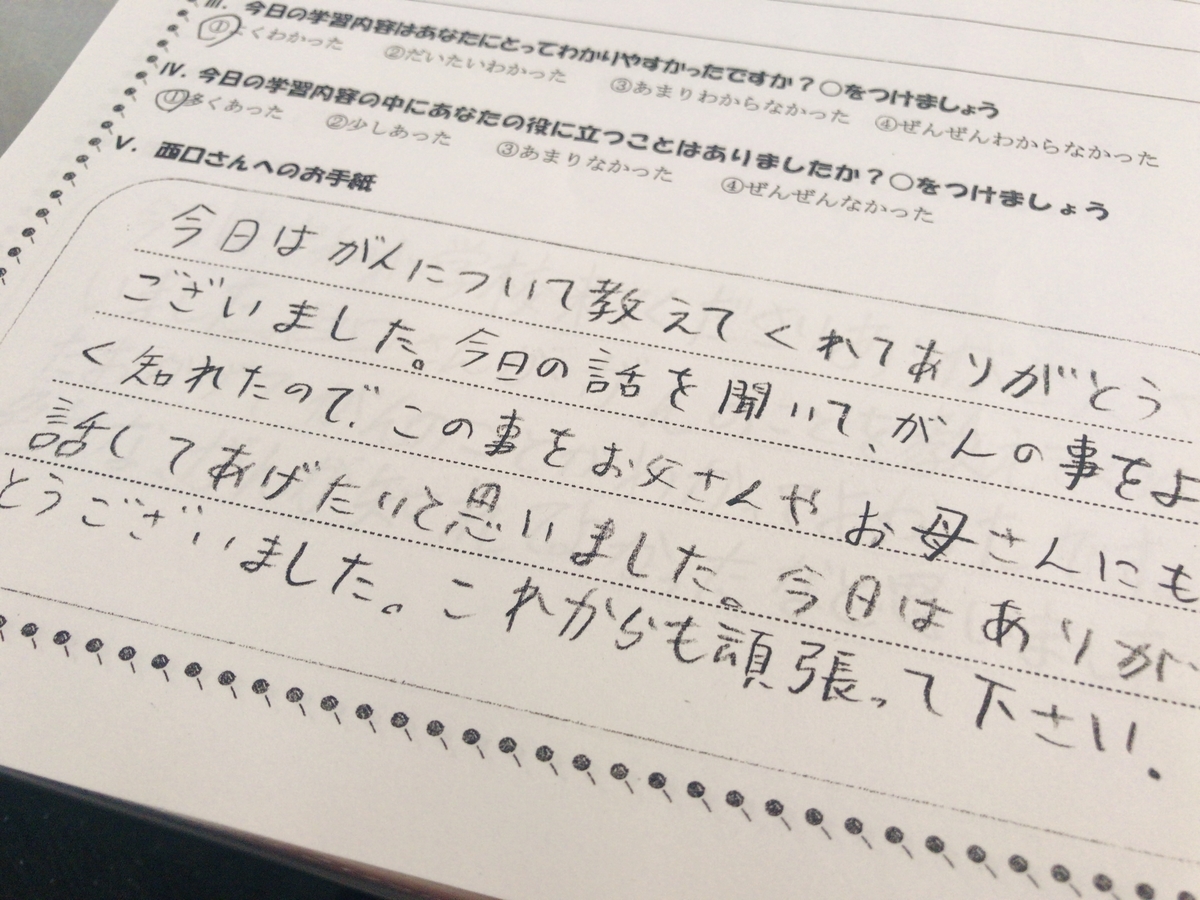 III. 今日の学習内容はあなたにとってわかりやすかったですか？○をつけましょう
①よくわかった ②だいたいわかった ③あまりわからなかった ④ぜんぜんわからなかった
IV. 今日の学習内容の中にあなたの役に立つことはありましたか？○をつけましょう
①多くあった ②少しあった ③あまりなかった ④ぜんぜんなかった
V. 西口さんへのお手紙
今日はがんについて教えてくれてありがとう
ございました。今日の話を聞いて、がんの事をよ
く知れたので、この事をお父さんやお母さんにも
話してあげたいと思いました。今日はありが
とうございました。これからも頑張って下さい.